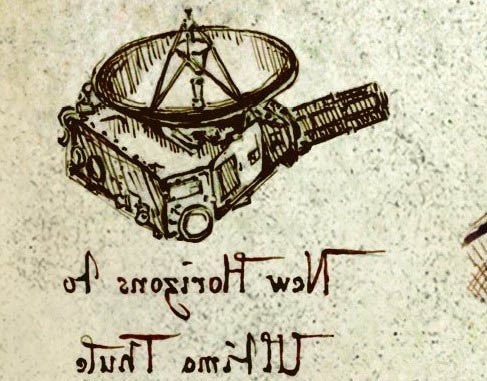 New Horizons to
Ultima Thule